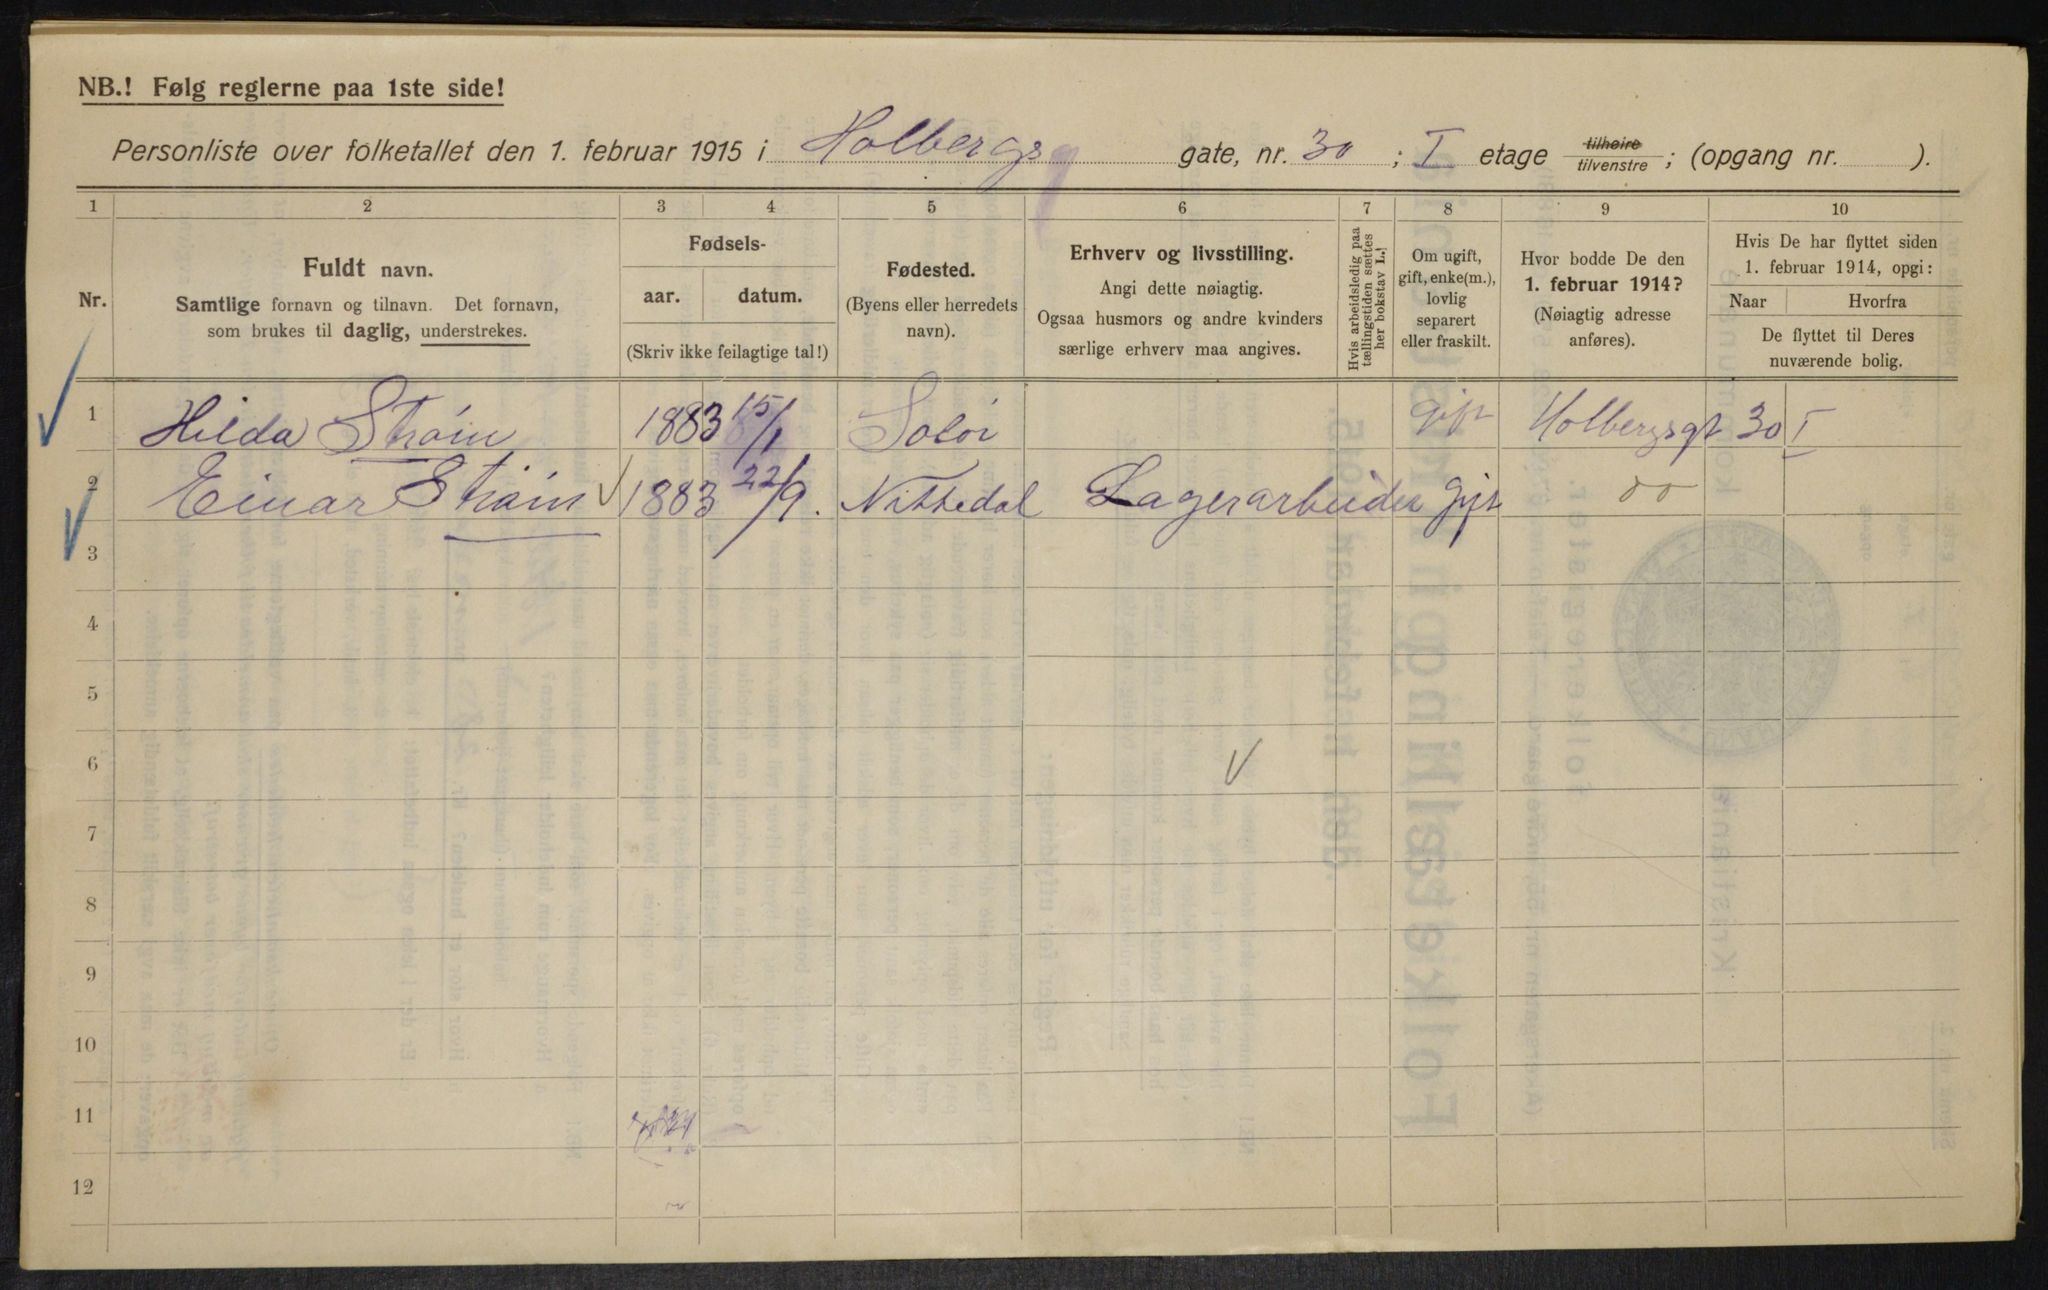 NB.! Følg reglerne paa 1ste side!
Personliste over folketallet den 1. februar 1915 i Holbergs gate, nr. 30 ; I etage tilhøire tilvenstre ; (opgang nr. ).
1 2 3 4 5 6 7 8 9 10
Nr.
Fuldt navn.
Samtlige fornavn og tilnavn. Det fornavn,
som brukes til daglig, understrekes.
Fødsels-
aar. datum.
(Skriv ikke feilagtige tal!)
Fødested.
(Byens eller herredets
navn).
Erhverv og livsstilling.
Angi dette nøiagtig.
Ogsaa husmors og andre kvinders
særlige erhverv maa angives.
Hvis arbeidsledig paa
tællingstiden sættes
her bokstav L.
Om ugift,
gift, enke(m.),
lovlig
separert
eller fraskilt.
Hvor bodde De den
1. februar 1914?
(Nøiagtig adresse
anføres).
Hvis De har flyttet siden
1. februar 1914, opgi:
Naar Hvorfra
De flyttet til Deres
nuværende bolig.
1 Hilda Strøm 1883 15/1 Solør gift Holbergsgt 30 I
2 Einar Strøm 1883 22/9. Nittedal Lagerarbeider gift do
3
4
5
6
7
8
9
10
11
12